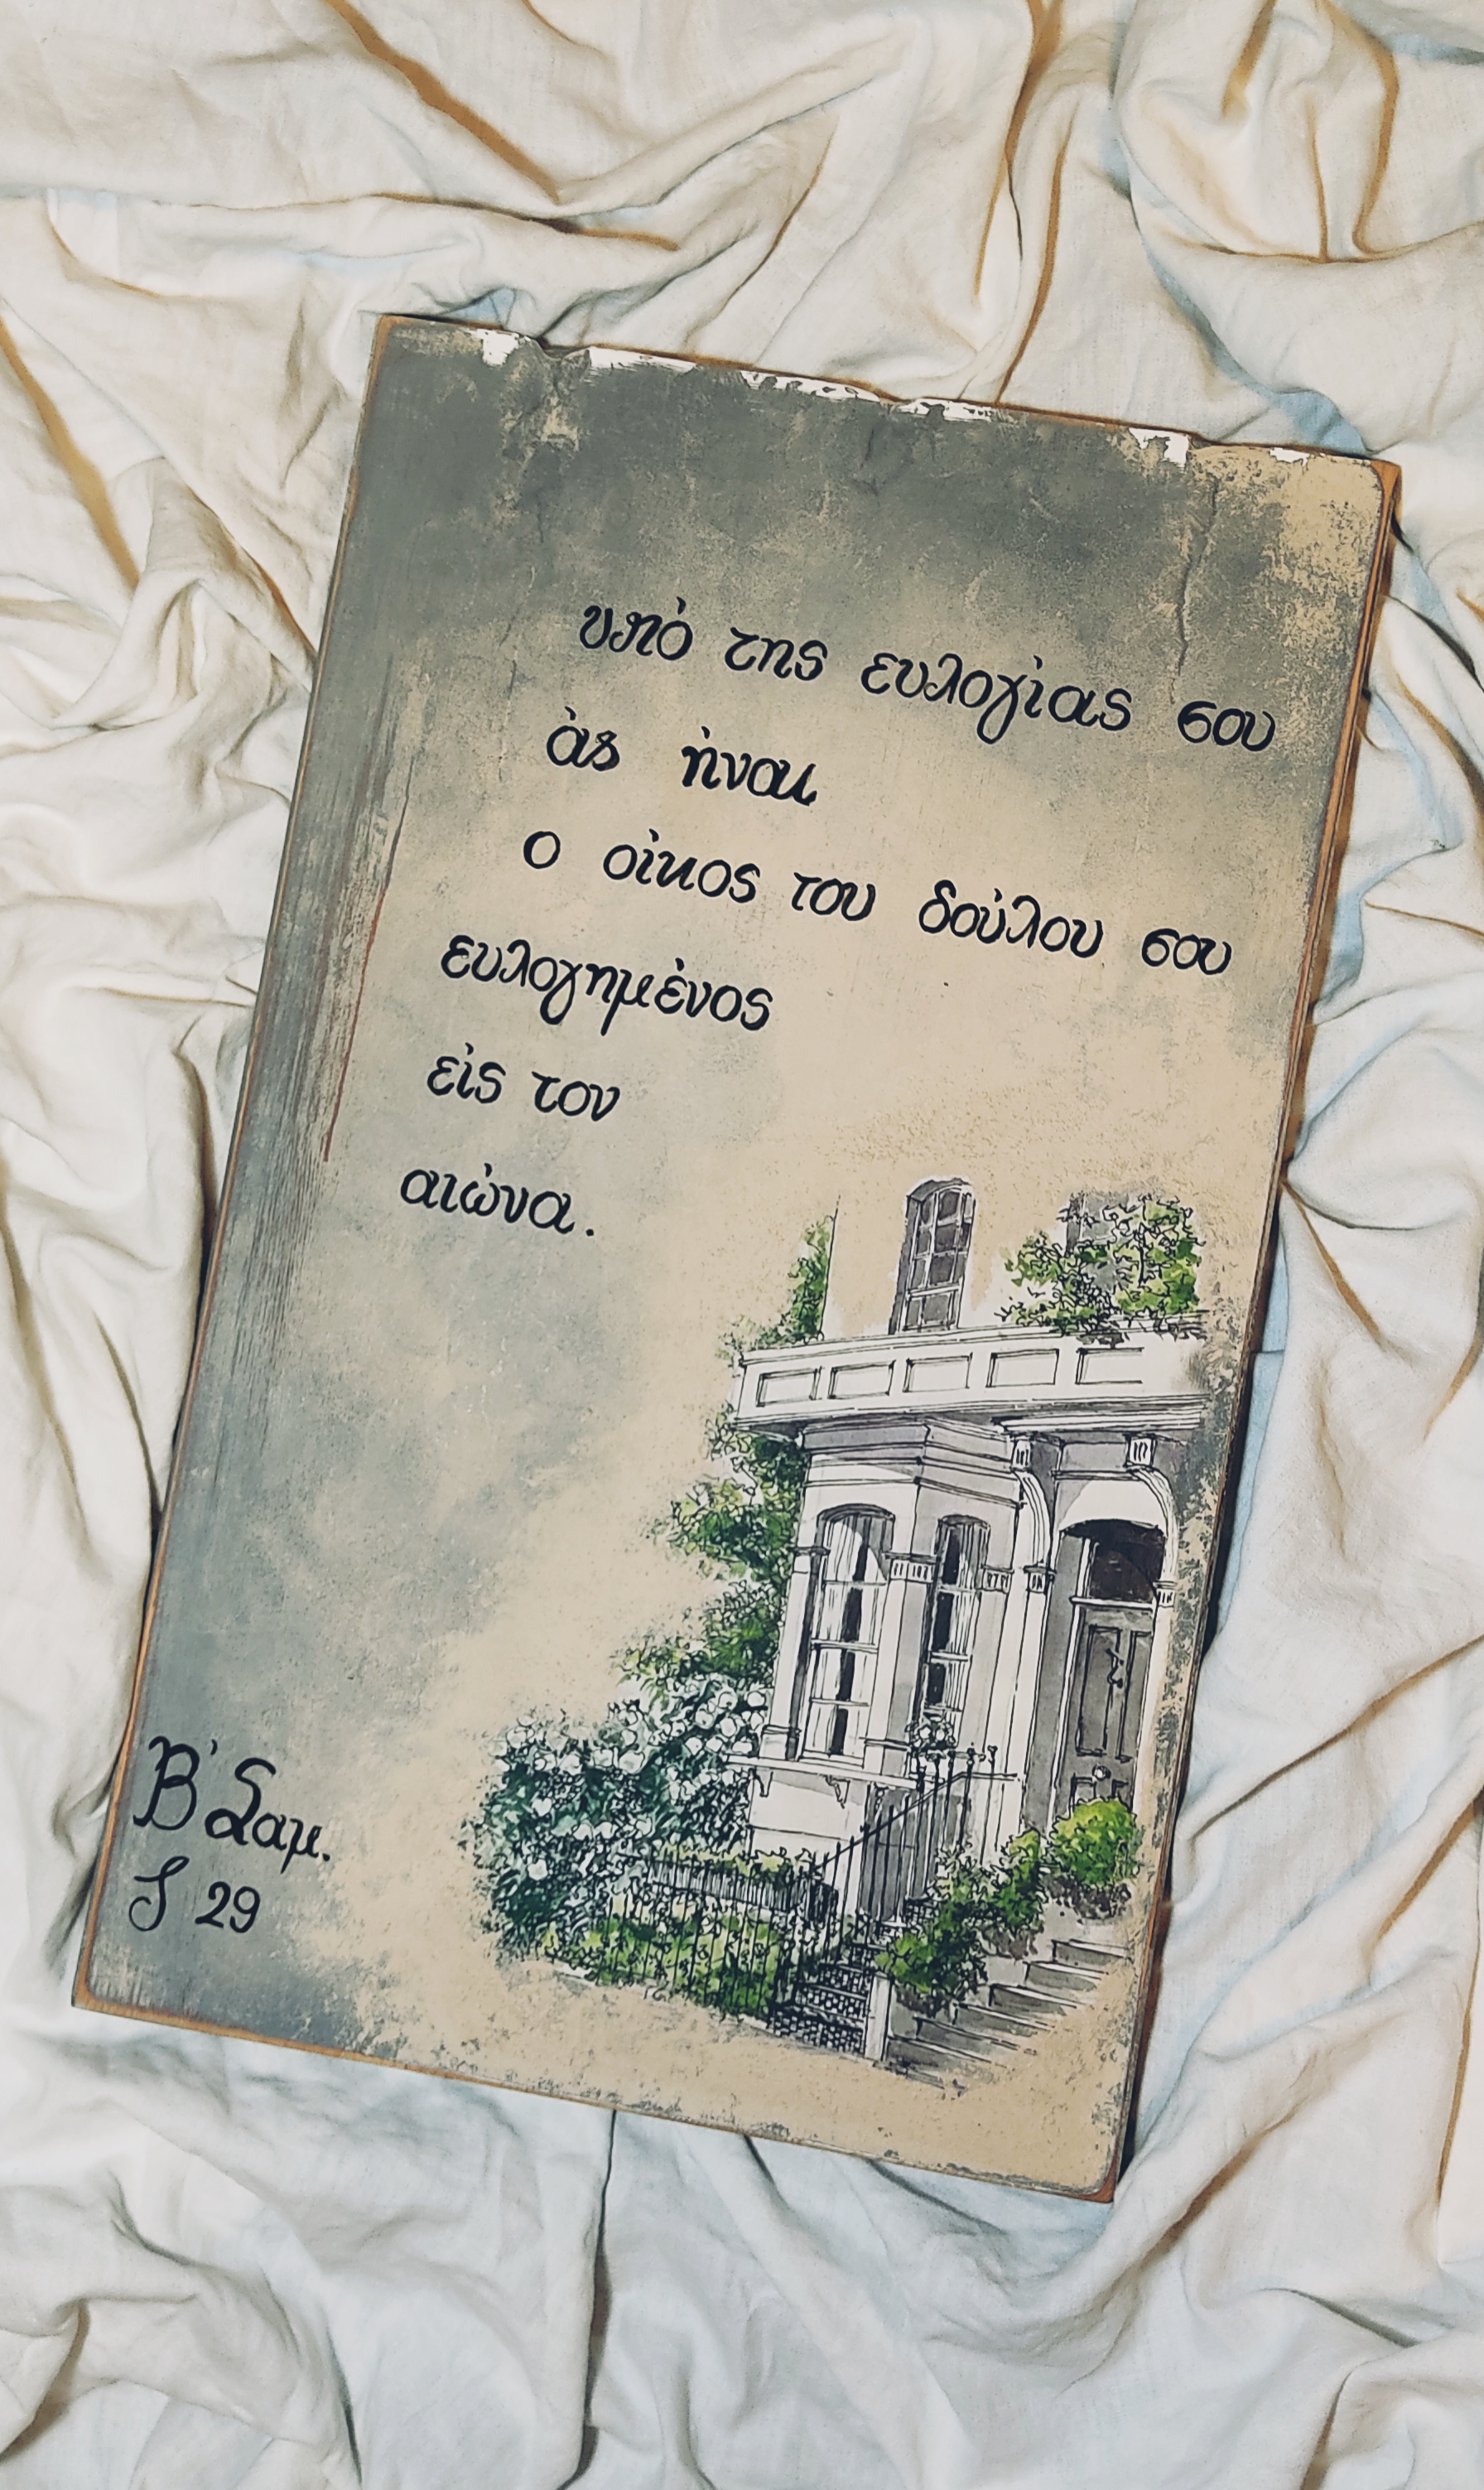 υπό της ευλογίας σου
άς ήναι
ο οίκος του δούλου σου
ευλογημένος
είς τον
αιώνα.
Β' Σαμ.
Ζ 29